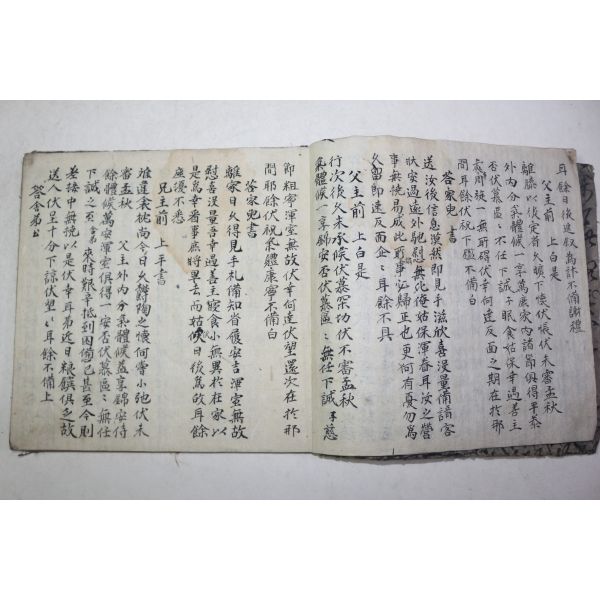 耳餘日後進叙爲計不備謝禮
父主前 上白是
離膝以後定省久曠下懷伏悵伏未審孟秋
外內分氣體候一享萬康家內諸節俱得平泰
否伏慕區〻不任下誠子眠食姑保幸遇善主
間耳餘伏祝下鑑不備白
答家兒書
送汝後信息漠然卽見手滋欣喜沒量備諳客
狀安過遠外馳慰無比俺姑保渾眷耳汝之營
事無挽易成此所事必歸正也更何有憂勿爲
久留卽速反面企〻耳餘不具
父主前 上白是
行次後久未承候伏慕罙切伏不審孟秋
氣體候一享錦安否伏慕區〻無任下誠子慈
節粗寧渾室無故伏幸何達伏望還次在於那
間耶餘伏祝氣體康寧不備白
答家兒書
離家日久得見手札備知眷履安吉渾室無故
慰喜沒量吾幸遇善主寢食小無異於在家以
是爲幸看事庶時畢去而姑伏日後爲故耳餘
座擾不悉
兄主前 上平書
雄達衾枕尚今日久鬱陶之懷何嘗小弛伏未
審孟秋 父主外內分氣體候益享錦安侍
餘體候萬安渾室俱得一安否伏慕區〻無任
下誠之至舍弟來時艱辛抵到困備已甚至今則
善接中無挽以是伏幸耳弟近日粮饌俱乏故
送人伏呈十分下諒伏望〻耳餘不備上
答舍弟書